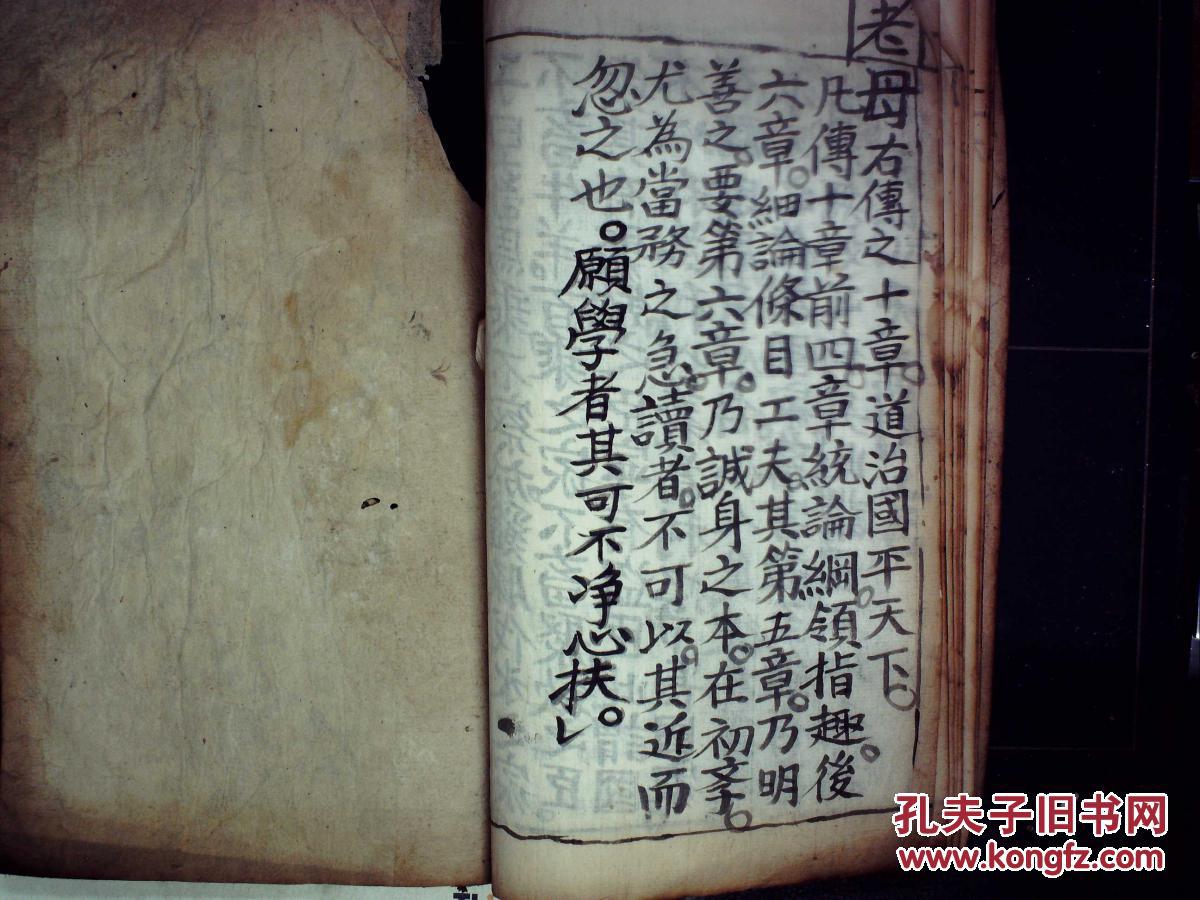 老
母右傳之十章。道治國平天下。
凡傳十章前四章統論綱領指趣。後
六章。細論條目工夫。其第五章。乃明
善之。要第六章。乃誠身之本。在初斈。
尤為當務之急。讀者。不可以。其近而
忽之也。願學者其可不净心扶。
孔夫子旧书网
www.kongfz.com